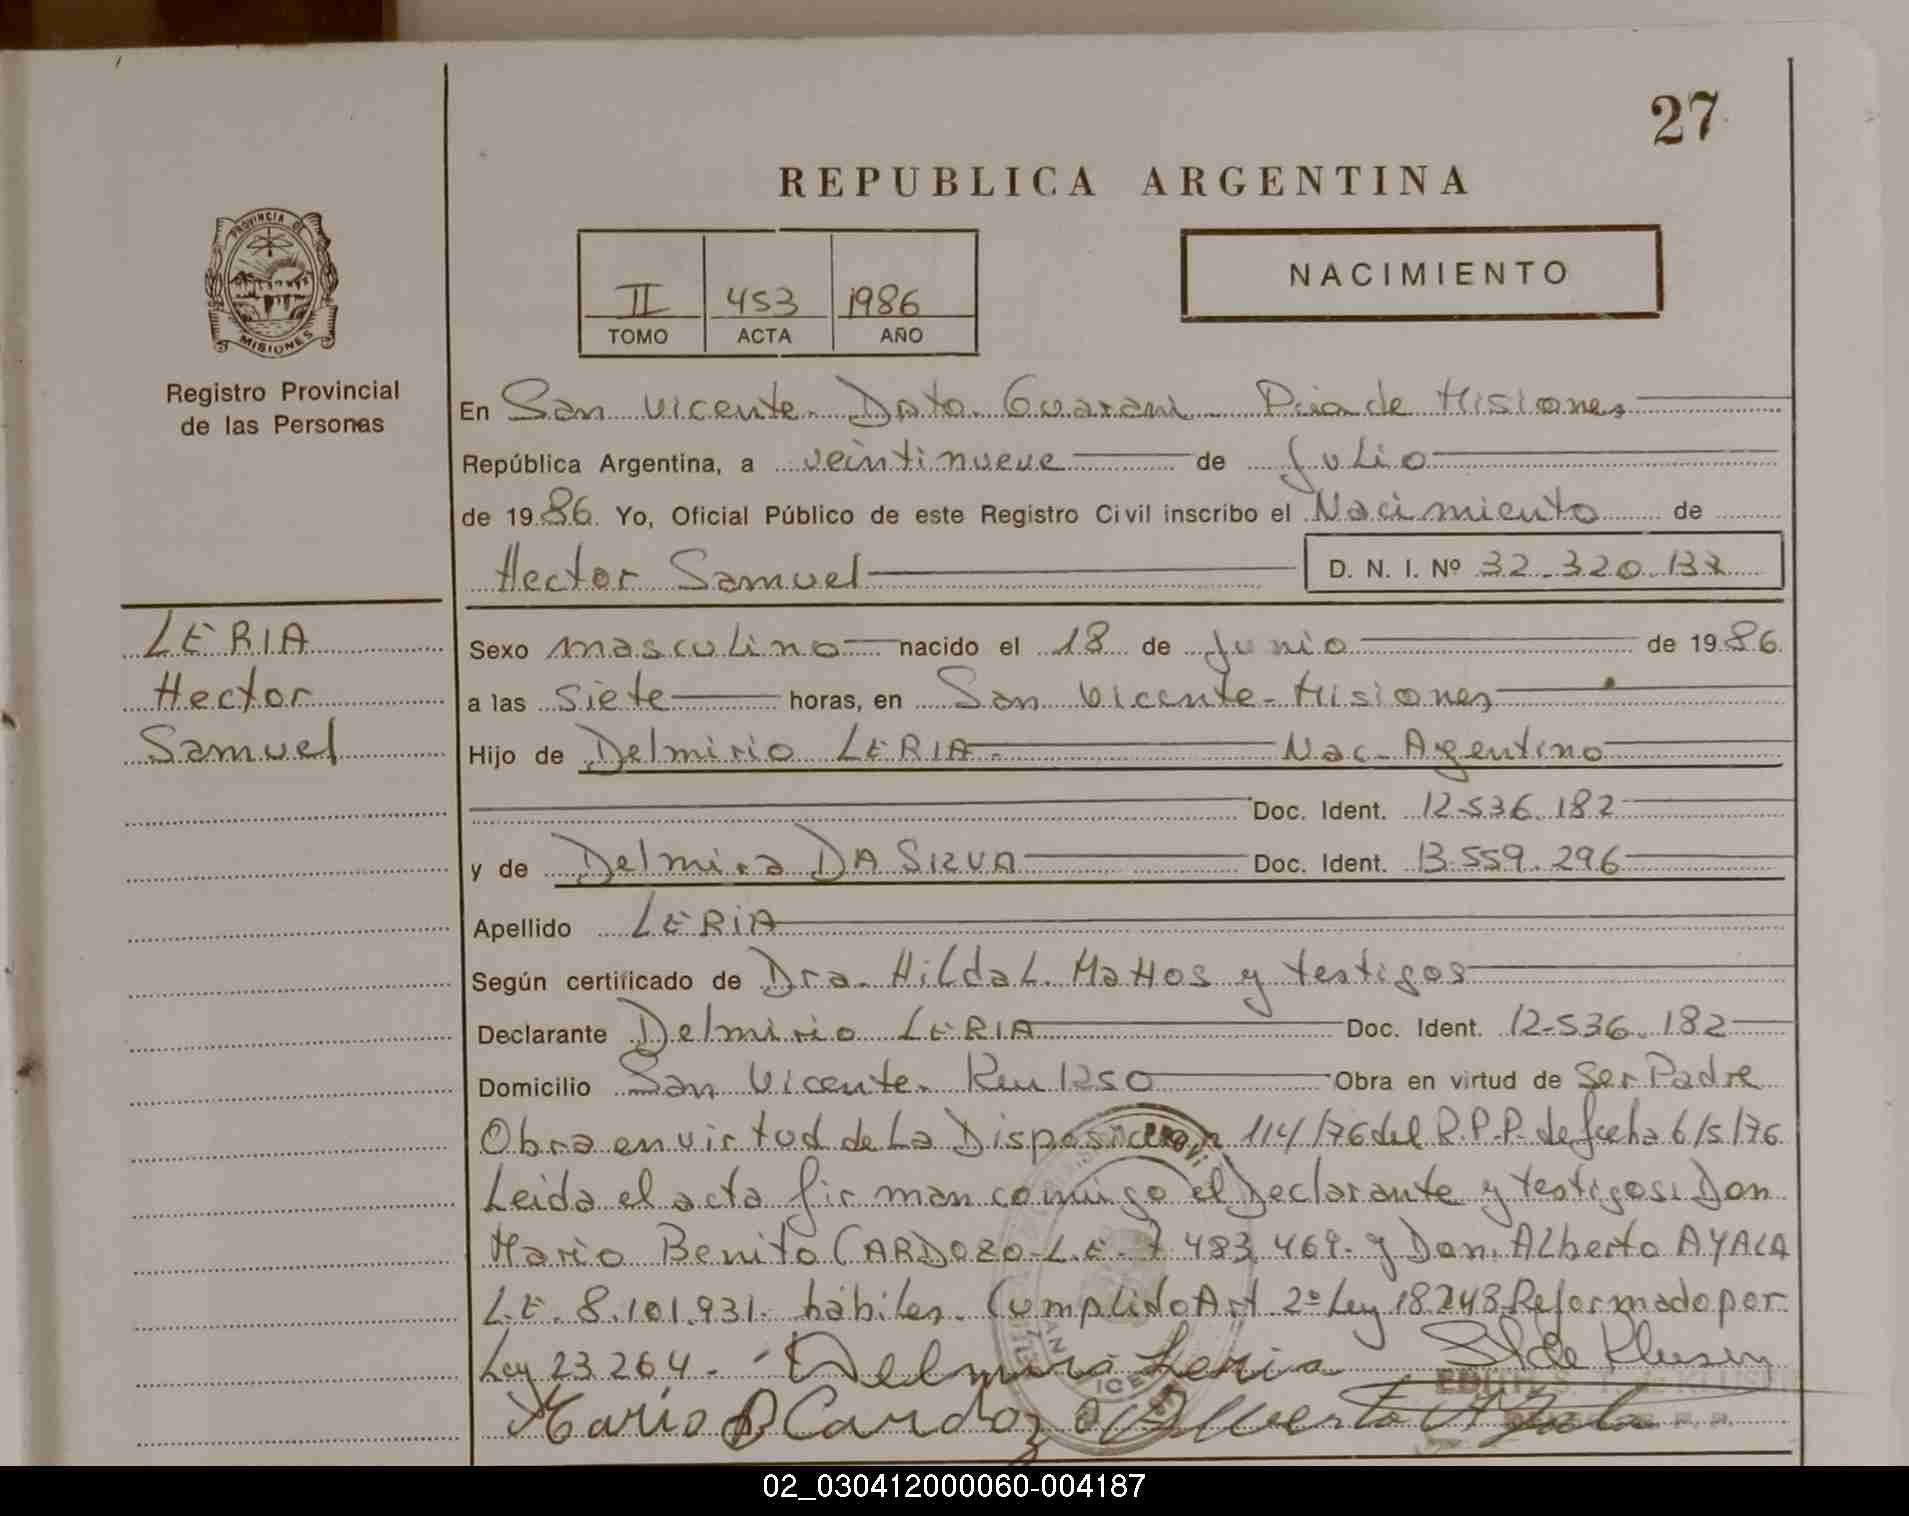 27
REPUBLICA ARGENTINA
PROVINCIA DE
MISIONES
Registro Provincial
de las Personas
II 453 1986
TOMO ACTA AÑO
NACIMIENTO
En San Vicente Dpto. Guarani Pcia de Misiones
República Argentina, a veintinueve de Julio
de 1986. Yo, Oficial Público de este Registro Civil inscribo el Nacimiento de
Hector Samuel D. N. I. Nº 32.320.137
LERIA
Hector
Samuel
Sexo masculino nacido el 18 de Junio de 1986.
a las siete horas, en San Vicente - Misiones
Hijo de Delmirio LERIA. Nac. Argentino
Doc. Ident. 12.536.182
y de Delmira DA SILVA Doc. Ident. 13.559.296
Apellido LERIA
Según certificado de Dra. Hilda L. Mattos y testigos
Declarante Delmirio LERIA Doc. Ident. 12.536.182
Domicilio San Vicente. Km 1250 Obra en virtud de Ser Padre
Obra en virtud de La Disposicion 114/76 del R.P.P. de fecha 6/5/76
Leida el acta firman conmigo el Declarante y testigos: Don
Mario Benito CARDOZO L.E. 7.483.469. y Don Alberto AYALA
L.E. 8.101.931. habiles. Cumplido Art 2º Ley 18.248 Reformado por
Ley 23.264.
Mario B Cardozo Alberto Ayala
02_030412000060-004187